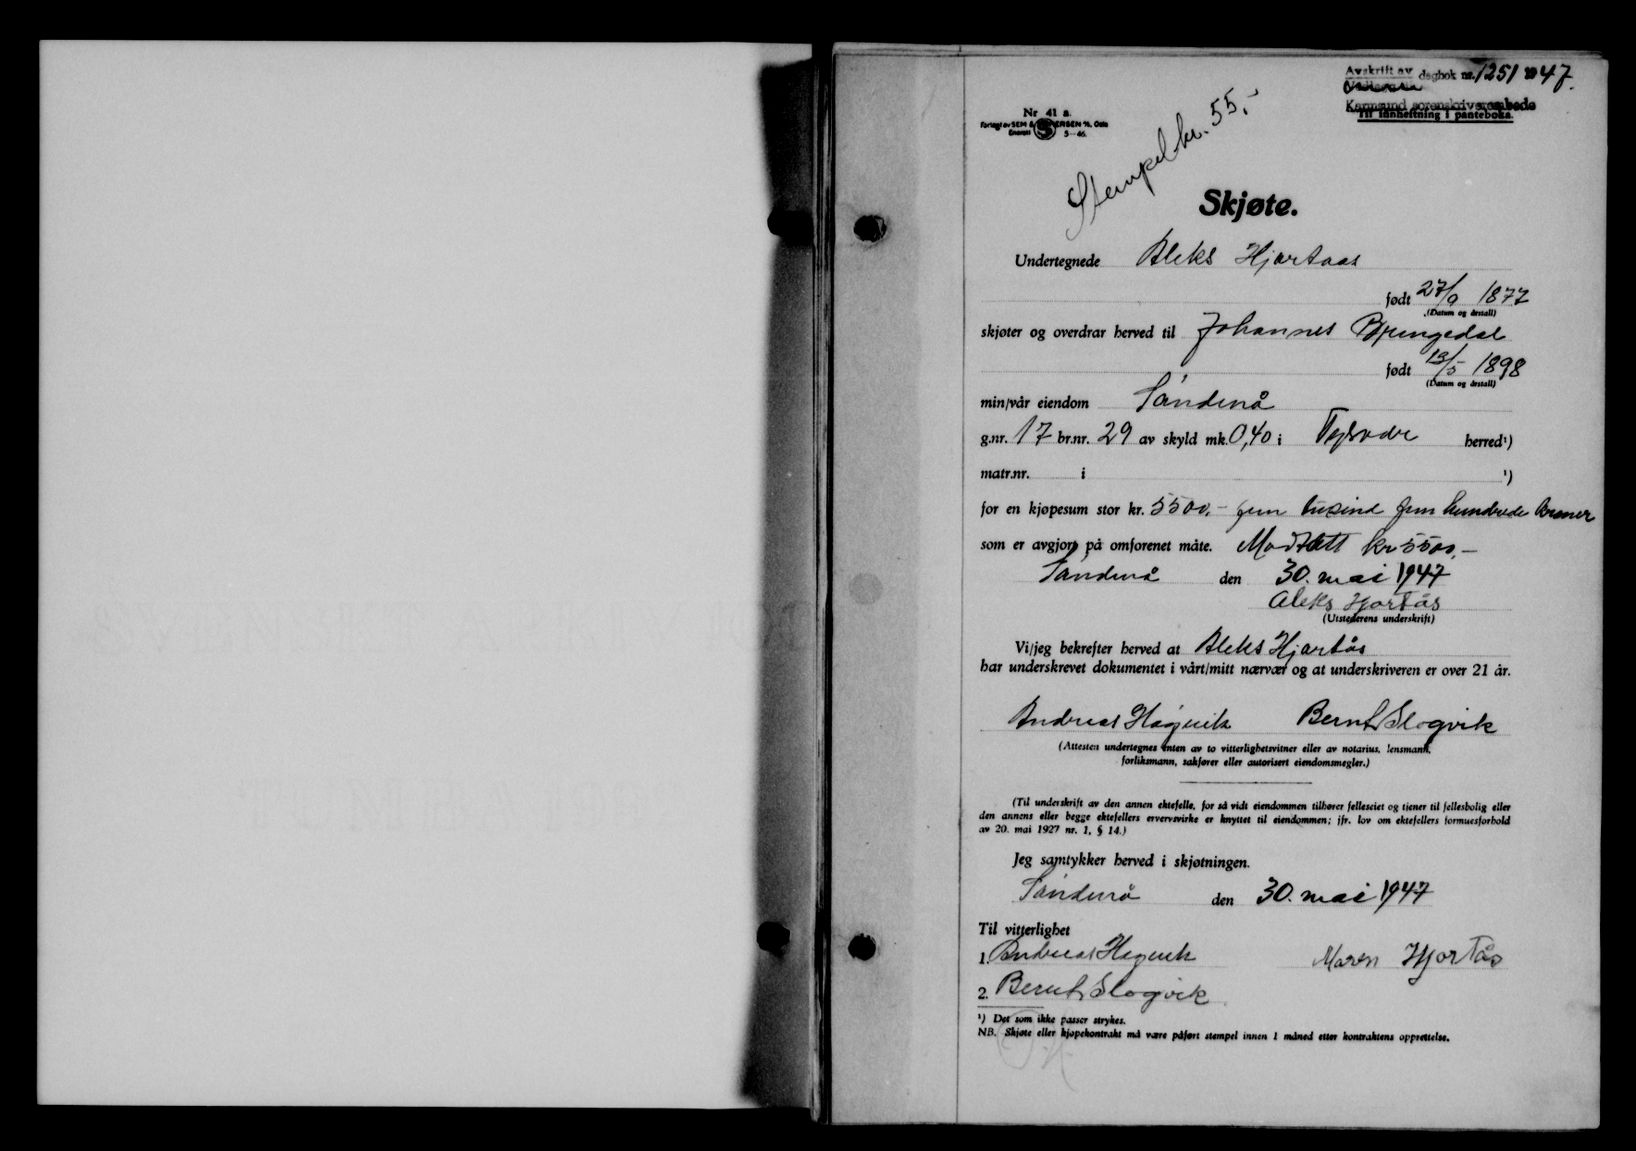 Avskrift av dagbok nr. 1251 1947.
Karmsund sorenskriverembede
Til innheftning i panteboka.
Nr 41 a.
Forlagt av SEM & STENERSEN A/S, Oslo
Enerett 5-46.
Stempel kr. 55,-
Skjøte.
Undertegnede Aleks Hjortaas
født 27/9 1877
(Datum og årstall)
skjøter og overdrar herved til Johannes Bjringedal
født 13/5 1898
(Datum og årstall)
min/vår eiendom Sandenå
g.nr. 17 br.nr. 29 av skyld mk. 0,40 i Tysvær herred¹)
matr.nr. i ¹)
for en kjøpesum stor kr. 5500,- fem tusind fem hundrede kroner
som er avgjort på omforenet måte. Modtatt kr 5500,-
Sandenå den 30. mai 1947
Aleks Hjortås
(Utstederens underskrift)
Vi/jeg bekrefter herved at Aleks Hjortås
har underskrevet dokumentet i vårt/mitt nærvær og at underskriveren er over 21 år.
Andreas Hagevik Bernt Slogvik
(Attesten undertegnes enten av to vitterlighetsvitner eller av notarius, lensmann,
forliksmann, sakfører eller autorisert eiendomsmegler.)
(Til underskrift av den annen ektefelle, for så vidt eiendommen tilhører felleseiet og tjener til fellesbolig eller
den annens eller begge ektefellers ervervsvirke er knyttet til eiendommen; jfr. lov om ektefellers formuesforhold
av 20. mai 1927 nr. 1, § 14.)
Jeg samtykker herved i skjøtningen.
Sandenå den 30. mai 1947
Til vitterlighet
1. Andreas Hagevik Maren Hjortås
2. Bernt Slogvik
¹) Det som ikke passer strykes.
NB. Skjøte eller kjøpekontrakt må være påført stempel innen 1 måned etter kontraktens opprettelse.